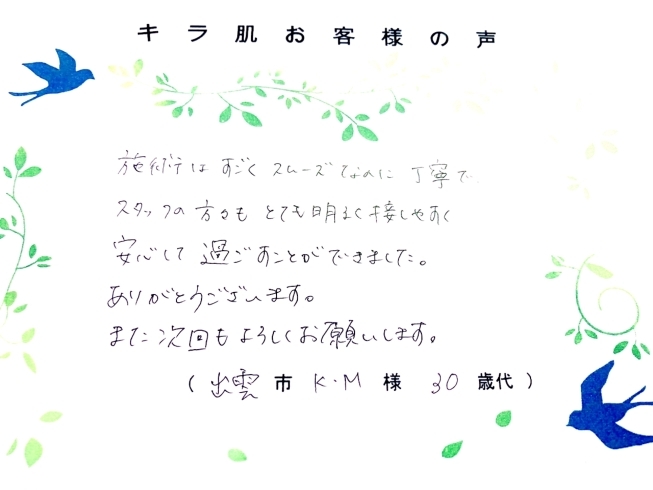 キラ肌お客様の声
施術はすごくスムーズなのに丁寧で
スタッフの方々もとても明るく接しやすく
安心して過ごすことができました。
ありがとうございます。
また次回もよろしくお願いします。
(出雲市 K・M 様 30 歳代)